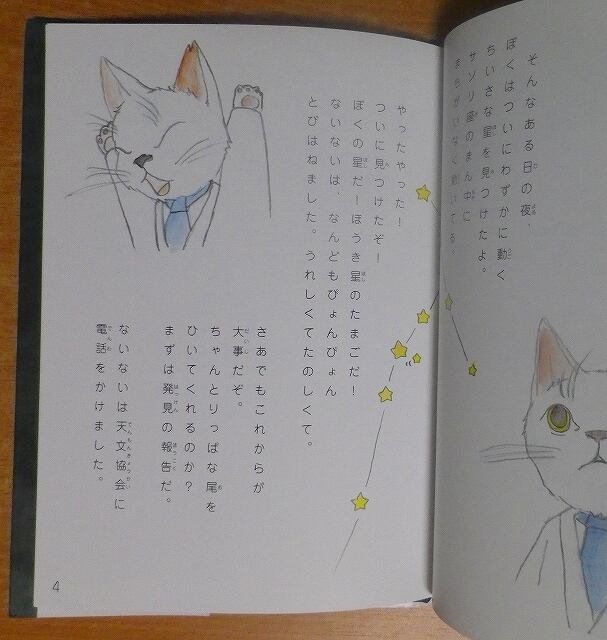 そんなある日の夜、
ぼくはついにわずかに動く
ちいさな星を見つけたよ。
サソリ座のまん中に
まちがいなく動いてる。
やったやった！
ついに見つけたぞ！
ぼくの星だーほうき星のたまごだ！
ないないは、なんどもぴょんぴょん
とびはねました。うれしくてたのしくて。
さあでもこれからが
大事だぞ。
ちゃんとりっぱな尾を
ひいてくれるのか？
まずは発見の報告だ。
ないないは天文協会に
電話をかけました。
4